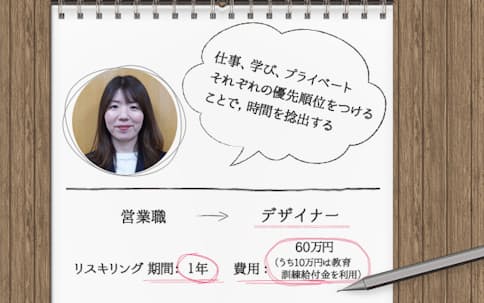 仕事、学び、プライベート
それぞれの優先順位をつける
ことで,時間を捻出する
営業職 → デザイナー
60万円
(うち10万円は教育
リスキリング 期間: 1年 費用: 訓練給付金を利用)